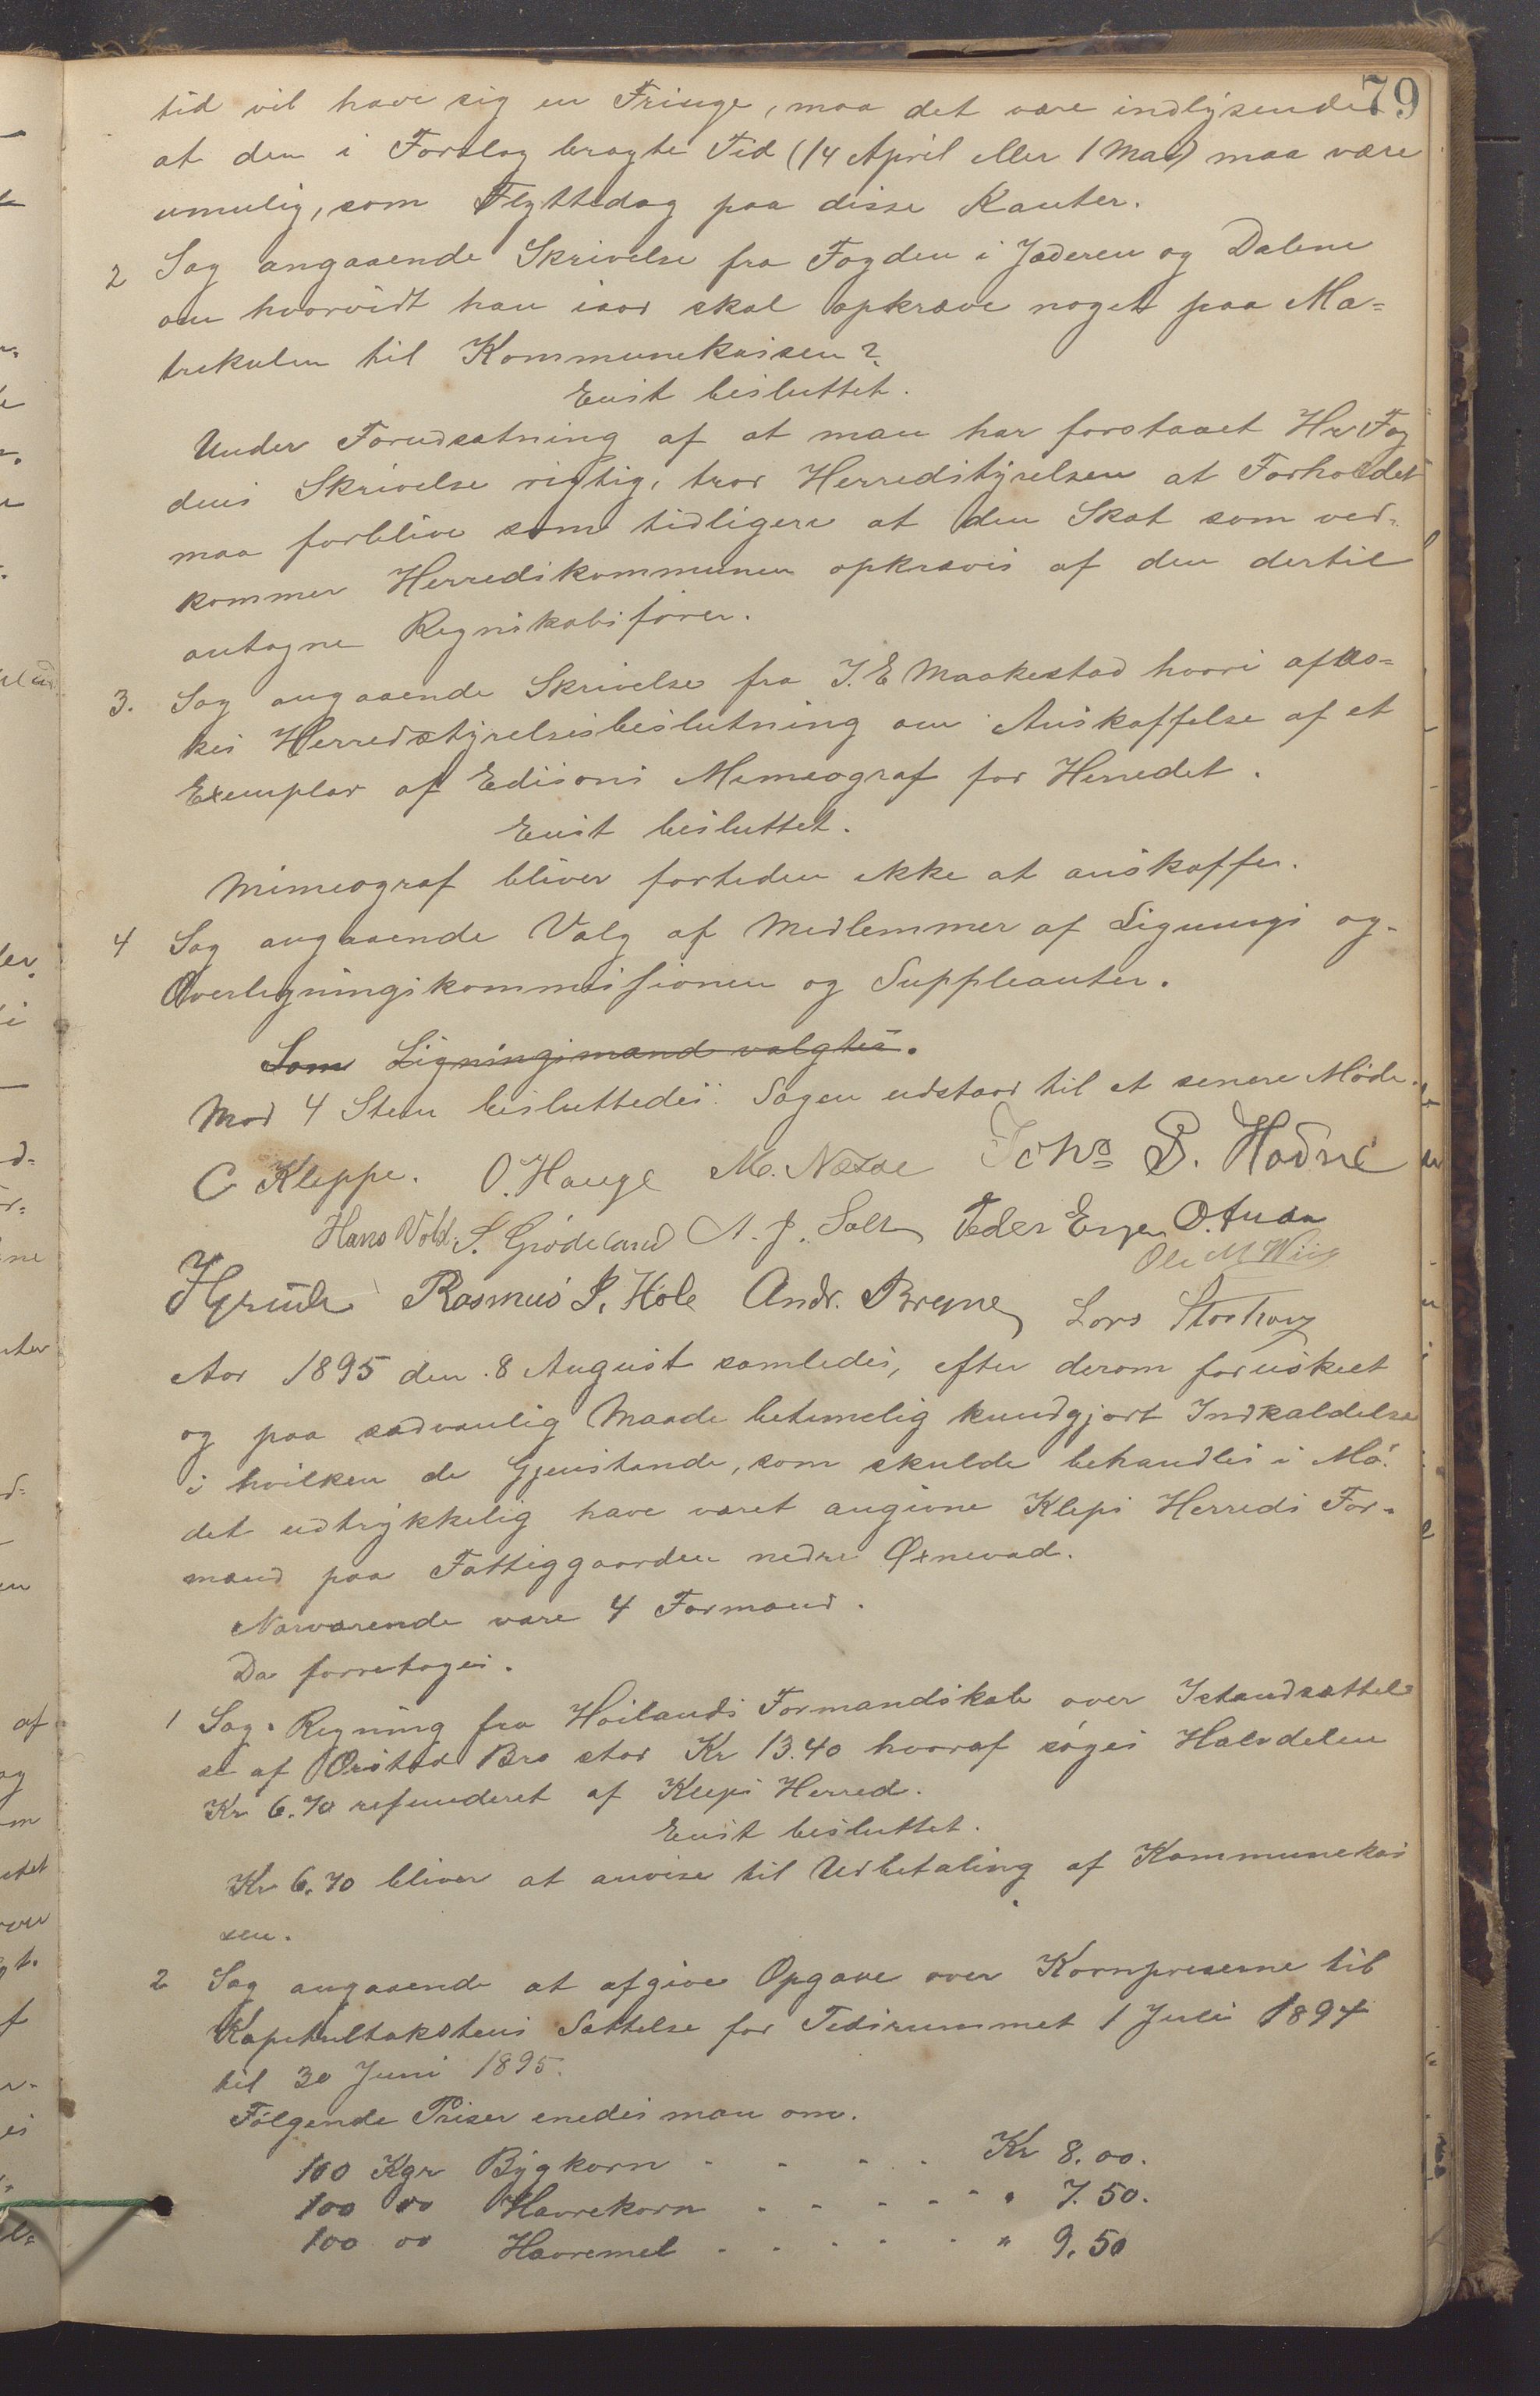 79
tid vil have sig en Tringe, maa det være indlysende
at den i Forslag bragte Tid (14 April eller 1 Mai) maa være
umulig, som Flyttedag paa disse Kanter.
2 Sag angaaende Skrivelse fra Fogden i Jæderen og Dalene
om hvorvidt han iaar skal opkræve noget paa Ma-
trekulen til Kommunekassen?
Enst besluttet.
Under Forudsætning af at man har forstaaet Hr Fog
dens Skrivelse rigtig, tror Herredstyrelsen at Forholdet
maa forblive som tidligere at den Skat som ved-
kommer Herredskommunen opkræves af den dertil
antagne Regnskabsfører.
3. Sag angaaende Skrivelse fra J. E Maakestad hvori afæs-
kes Herredstyrelsesbeslutning om Anskaffelse af et
Exemplar af Edisons Mimeograf for Herredet.
Enst besluttet.
Mimeograf bliver fortiden ikke at anskaffe.
4 Sag angaaende Valg af Medlemmer af Lignings og-
Overligningskommissionen og Suppleanter.
Som Ligningsmænd valgtes.
Mod 4 Stem besluttedes: Sagen udstaar til et senere Møde.
C Kleppe. O. Hauge M. Næsse Johs S. Hodne
Hans Vold. S. Grødeland A. J. Salte Peder Erga O. Anda
Ole M Wiig
Rasmus P. Hole Andr. Bryne Lars Storhoug
Aar 1895 den 8 August samledes, efter derom foruskeet
og paa sædvanlig Maade betimelig kundgjort Indkaldelse
i hvilken de Gjenstande, som skulde behandles i Mø-
det udtrykkelig have været angivne Kleps Herreds For-
mænd paa Fattiggaarden nedre Øxnevad.
Nærværende vare 4 Formænd.
Da forretoges.
1 Sag. Regning fra Høilands Formandskab over Istandsættel
se af Ørstad Bro stor Kr 13.40 hvoraf søges Halvdelen
Kr 6.70 refunderet af Kleps Herred.
Enst besluttet.
Kr 6.70 bliver at anvise til Udbetaling af Kommunekas
sen.
2 Sag angaaende at afgive Opgave over Kornpriserne til
Kapitultakstens Sættelse for Tidsrummet 1 Juli 1894
til 30 Juni 1895.
Følgende Priser enedes man om.
100 Kgr Bygkorn . . . . Kr 8.00.
100 " Havrekorn . . . . . " 7.50.
100 " Havremel . . . . . " 9.50